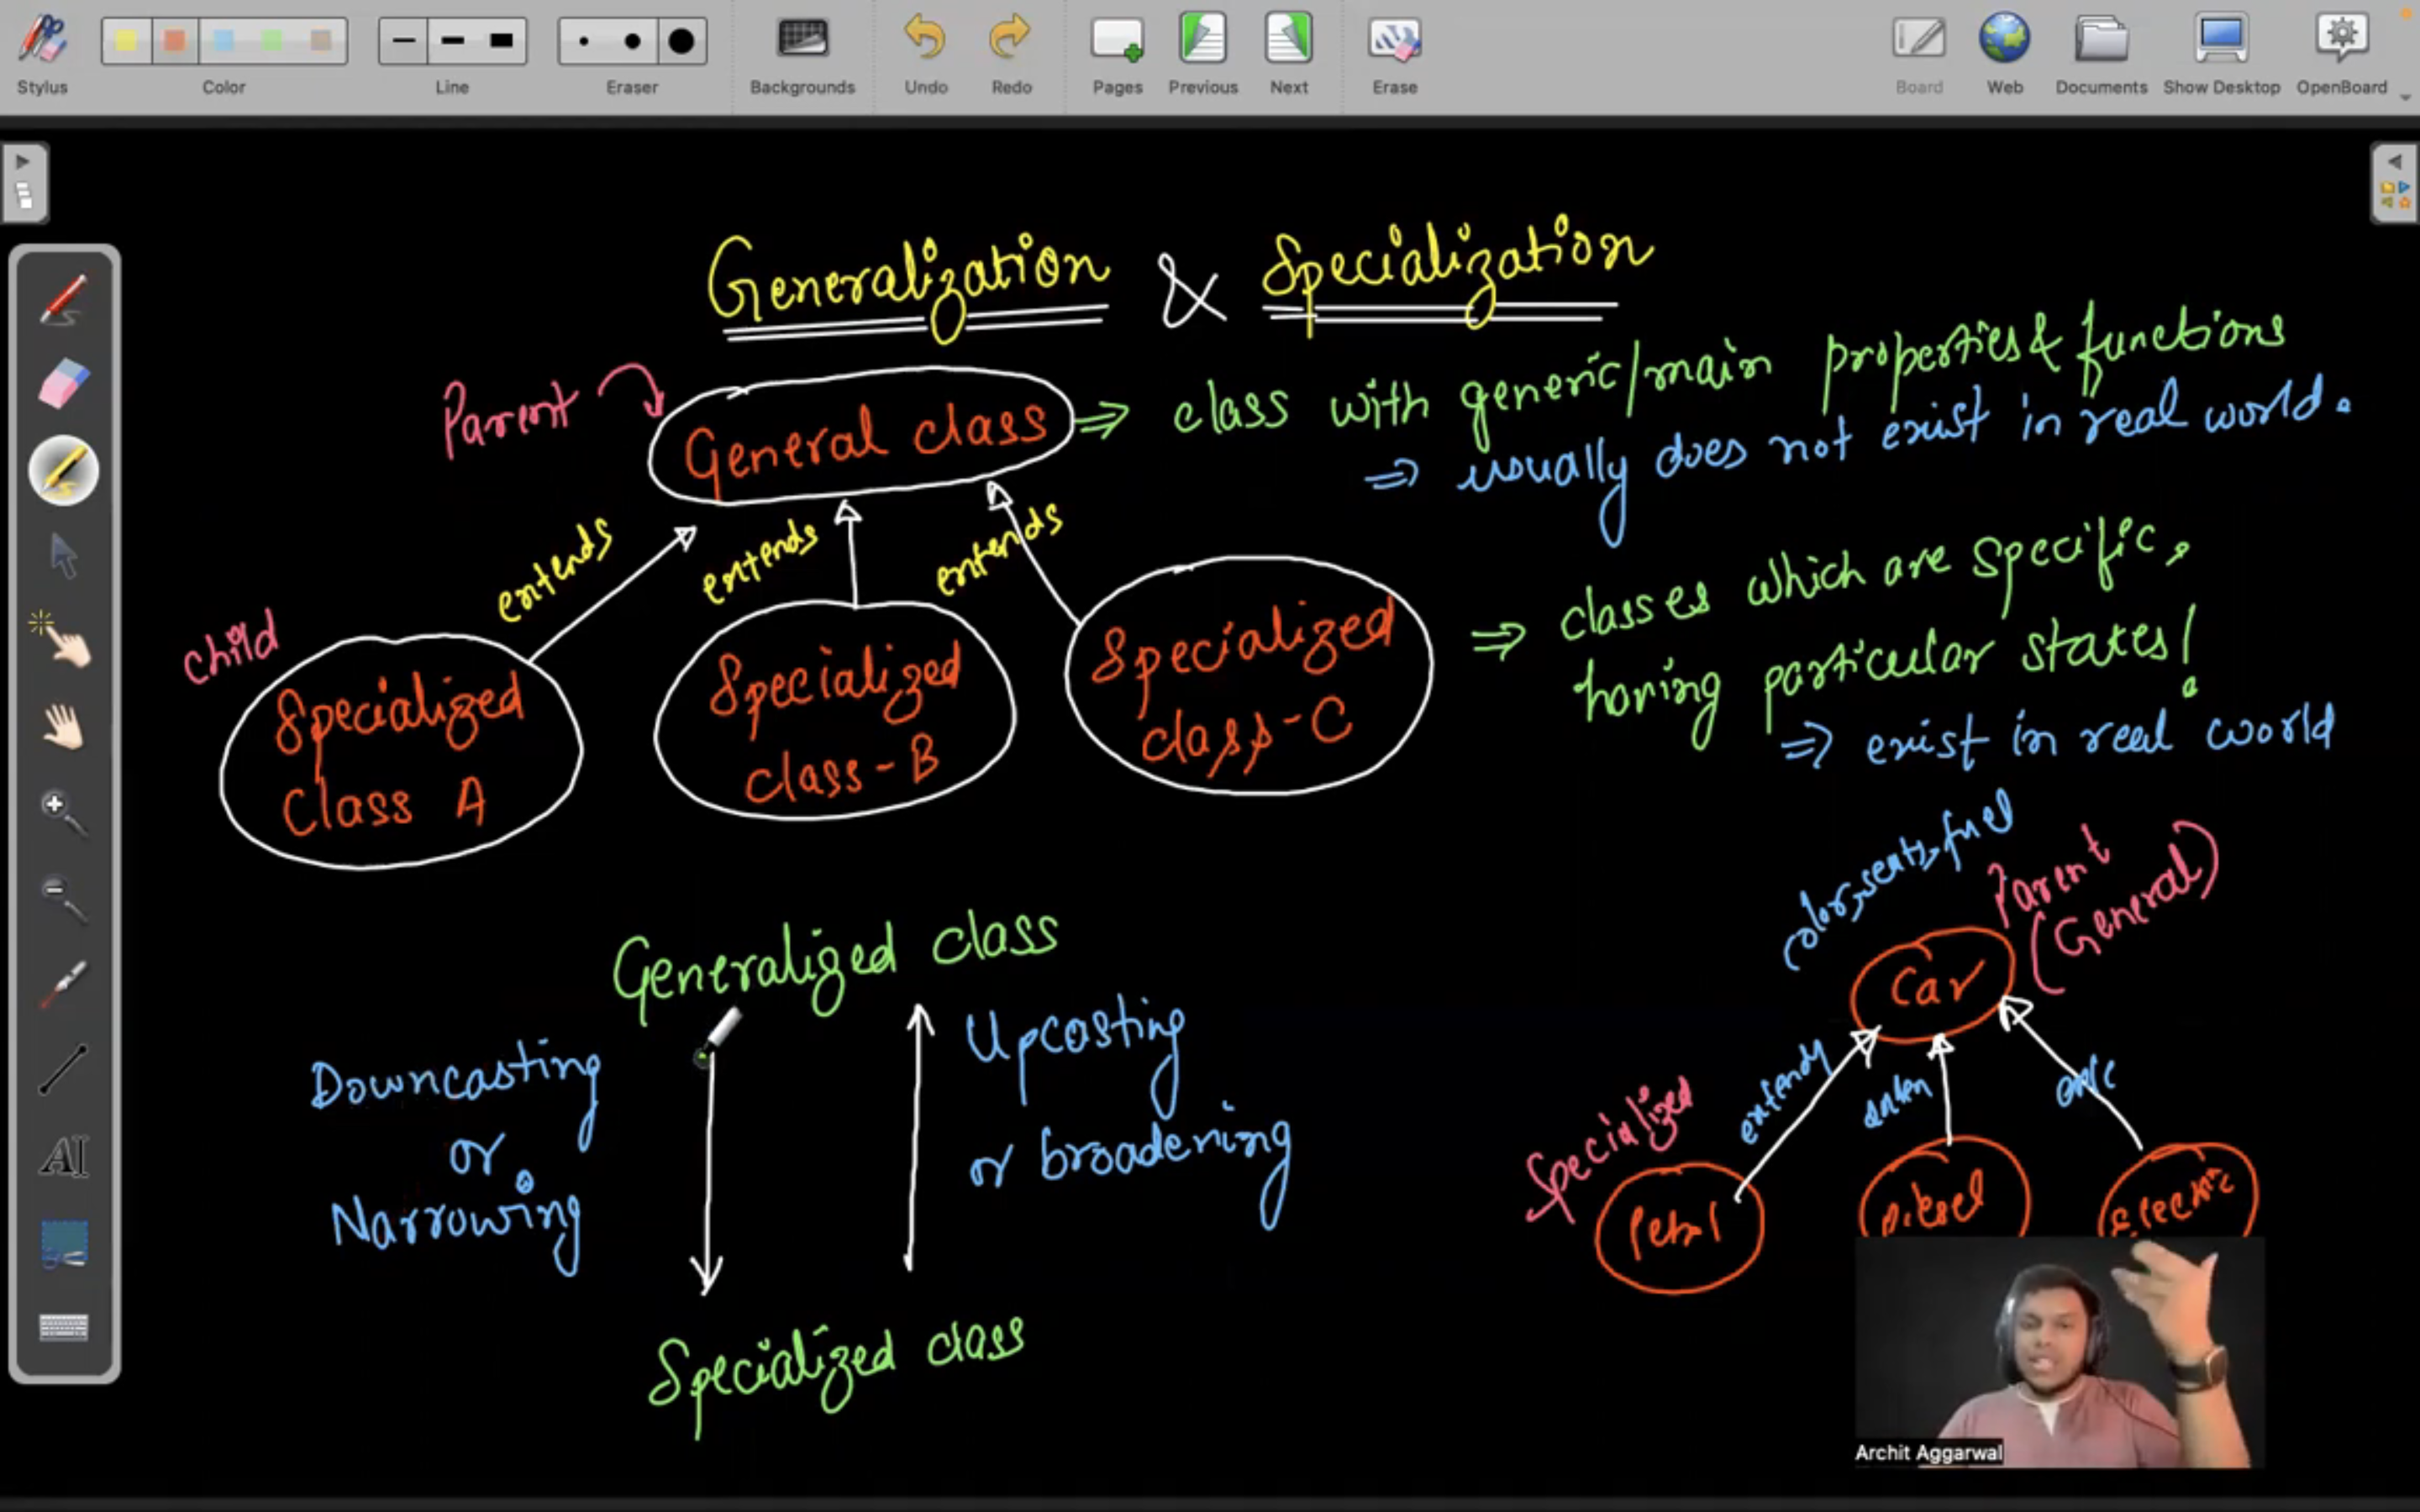 Stylus
Color
Line
Eraser
Backgrounds
Undo
Redo
Pages
Previous
Next
Erase
Board
Web
Documents
Show Desktop
OpenBoard
Generalization & Specialization
Parent
General class
⇒ class with generic/main properties & functions
⇒ usually does not exist in real world.
extends
extends
extends
child
Specialized
Class A
Specialized
class-B
Specialized
class-C
⇒ classes which are specific,
having particular states!
⇒ exist in real world
Generalized class
Downcasting
or
Narrowing
Upcasting
or broadening
Specialized class
color, seats, fuel
Parent
(General)
Car
extends
Specialized
Petrol
Diesel
Electric
AI
Archit Aggarwal